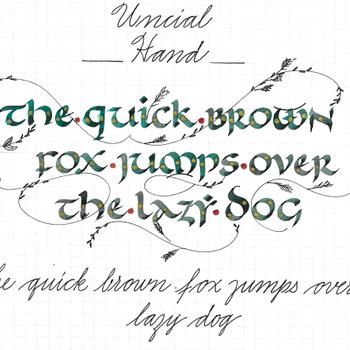 Uncial
Hand
the·quick·brown
fox·jumps·over
the·lazy·dog
he quick brown fox jumps over
lazy dog